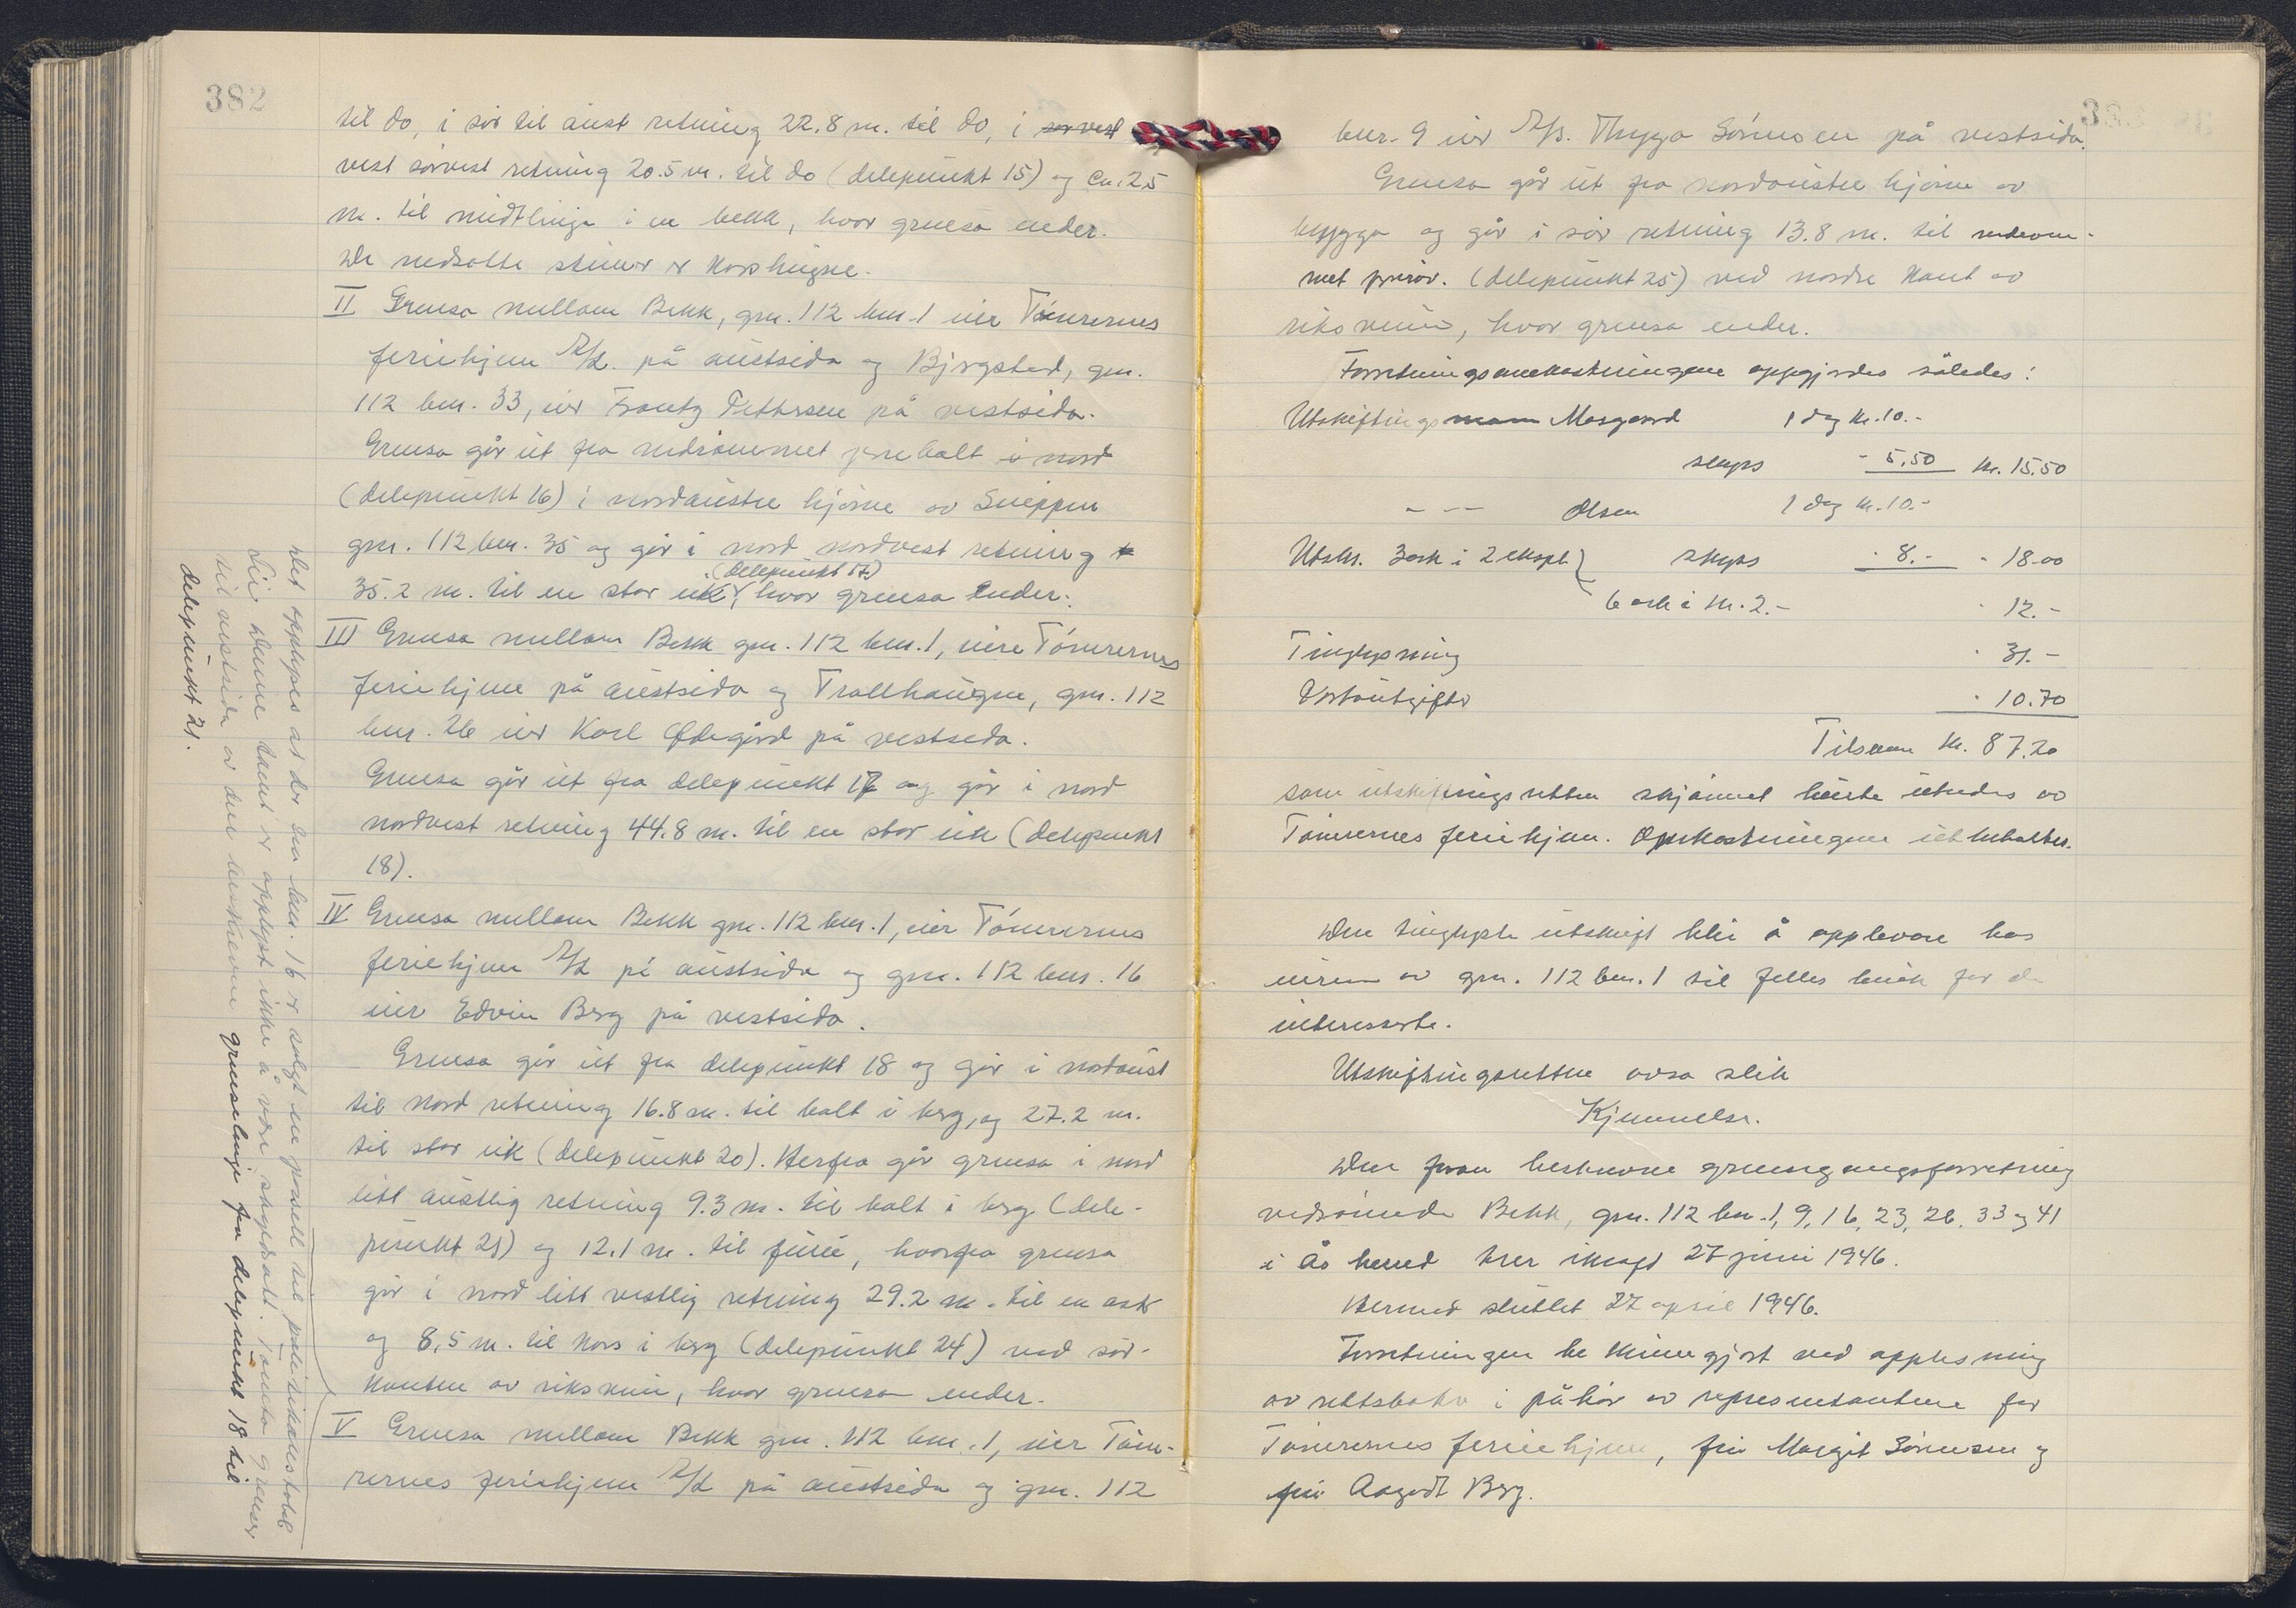 382
til do, i sør til aust retning 22.8 m. til do, i sørvest
vest sørvest retning 20.5 m. til do (delepunkt 15) og ca. 2.5
m. til midtlinja i en bekk, hvor grensa ender.
De nedsatte steiner er korshugne.
II Grensa mellom Bekk, gnr. 112 bnr. 1 eier Tømrernes
feriehjem A/L på austsida og Bjørgstad, gnr.
112 bnr. 33, eier Frantz Pettersen på vestsida.
Grensa går ut fra nedrammet jernbolt i nord
(delepunkt 16) i nordaustre hjørne av Sneppen
gnr. 112 bnr. 35 og går i nord nordvest retning
35.2 m. til en stor eik (delepunkt 17), hvor grensa ender.
III Grensa mellom Bekk gnr. 112 bnr. 1, eiere Tømrernes
feriehjem på austsida og Trollhaugen, gnr. 112
bnr. 26 eier Karl Ødegård på vestsida.
Grensa går ut fra delepunkt 17 og går i nord
nordvest retning 44.8 m. til en stor eik (delepunkt
18).
IV Grensa mellom Bekk gnr. 112 bnr. 1, eier Tømrernes
feriehjem A/L på austsida og gnr. 112 bnr. 16
eier Edvin Berg på vestsida.
Grensa går ut fra delepunkt 18 og går i nordaust
til nord retning 16.8 m. til bolt i berg, og 27.2 m.
til stor eik (delepunkt 20). Herfra går grensa i nord
litt austlig retning 9.3 m. til bolt i berg (dele-
punkt 21) og 12.1 m. til furu, hvorfra grensa
går i nord litt vestlig retning 29.2 m. til en ask
og 8,5 m. til kors i berg (delepunkt 24) ved sør-
kanten av riksveien, hvor grensa ender.
V Grensa mellom Bekk gnr. 112 bnr. 1, eier Tøm-
rernes feriehjem A/L på austsida og gnr. 112
Det opplyses at der fra bnr. 16 er solgt en parsell til
denne tomt er opplyst ikke å være skyldsatt. Tomta grenser
til vestsida av den beskrevne grenselinje fra delepunkt 18 til
delepunkt 21.
bnr. 9 eier Thygo Sørensen på vestsida.
Grensa går ut fra nordaustre hjørne av
brygga og går i sør retning 13.8 m. til nedram-
met jernrør. (delepunkt 25) ved nordre kant av
riksveien, hvor grensa ender.
Forretningsomkostningene oppgjordes således:
Utskiftingsmann Mosgaard 1 dag kr. 10.-
skyss - 5,50 kr. 15.50
- -- Olsen 1 dag kr. 10.-
Utskr. 3 ark i 2 ekspl. skyss - 8.- - 18.00
6 ark à kr. 2.- - 12.-
Tinglysning - 31.-
Portoutgifter - 10.70
Tilsam kr. 87.20
som utskiftingsretten skjønnet burde utredes av
Tømrernes feriehjem. Omkostningene utbetaltes.
Den tinglyste utskrift blir å opplevere hos
eieren av gnr. 112 bnr. 1 til felles bruk for de
interesserte.
Utskiftingsretten avsa slik
Kjennelse.
Den foran beskrevne grensegangsforretning
vedrørende Bekk, gnr. 112 bnr. 1, 9, 16, 23, 26, 33 og 41
i Ås herred trer ikraft 27 juni 1946.
Hermed sluttet 27 april 1946.
Forretningen bekjennegjort ved opplesning
av rettsboka i påhør av representantene for
Tømrernes feriehjem, fru Margit Sørensen og
fru Aagodt Berg.